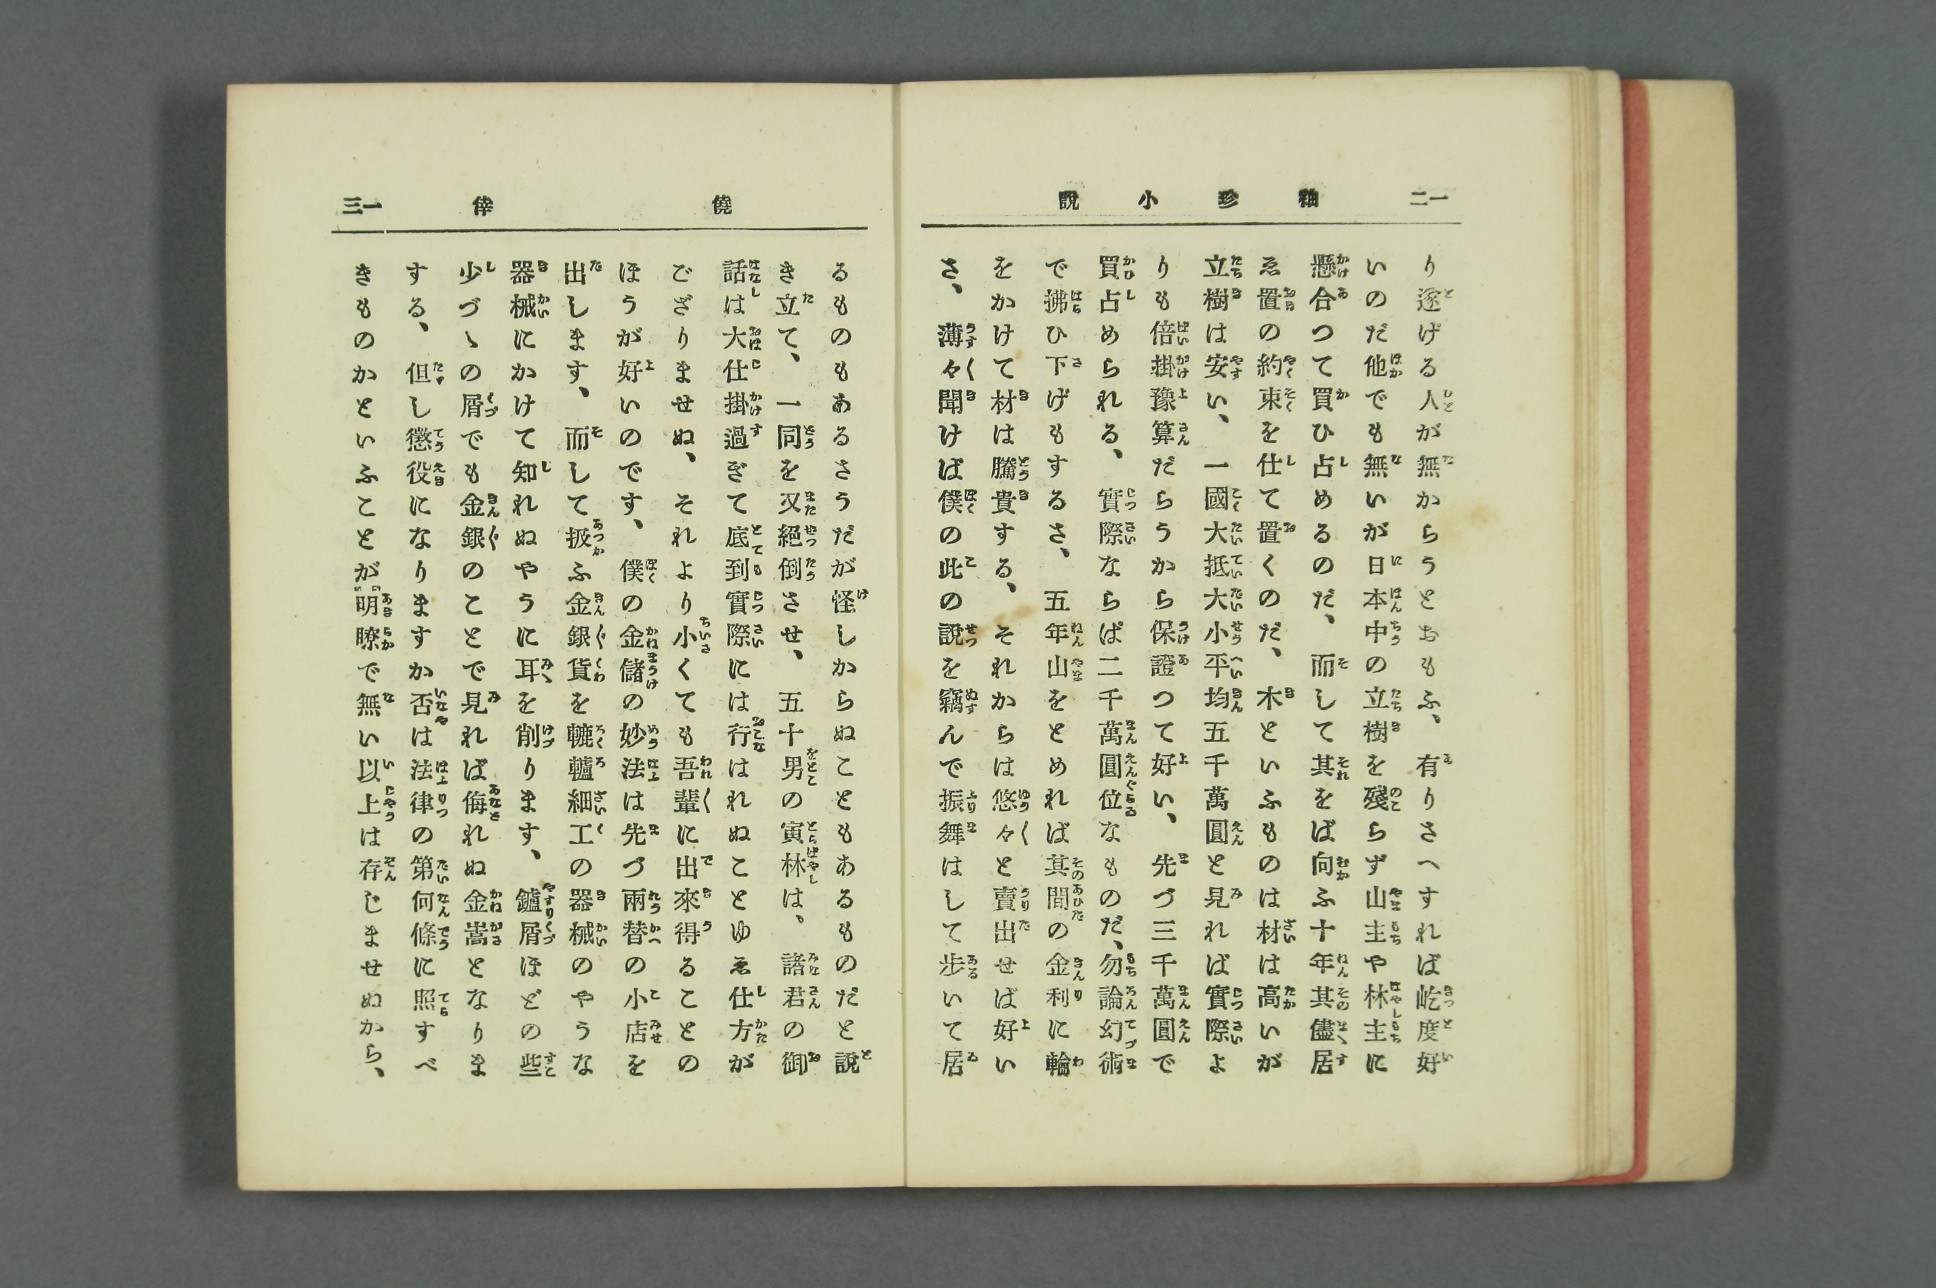 一二　袖珍小說
り遂げる人が無からうとおもふ、有りさへすれば屹度好
いのだ他でも無いが日本中の立樹を殘らず山主や林主に
懸合つて買ひ占めるのだ、而して其をば向ふ十年其儘居
ゑ置の約束を仕て置くのだ、木といふものは材は高いが
立樹は安い、一國大抵大小平均五千萬圓と見れば實際よ
りも倍掛豫算だらうから保證つて好い、先づ三千萬圓で
買占められる、實際ならば二千萬圓位なものだ、勿論幻術
で拂ひ下げもするさ、五年山をとめれば其間の金利に輪
をかけて材は騰貴する、それからは悠々と賣出せば好い
さ、薄々聞けば僕の此の說を竊んで振舞はして步いて居
僥倖　一三
るものもあるさうだが怪しからぬこともあるものだと說
き立て、一同を又絕倒させ、五十男の寅林は、諸君の御
話は大仕掛過ぎて底到實際には行はれぬことゆゑ仕方が
ござりませぬ、それより小くても吾輩に出來得ることの
ほうが好いのです、僕の金儲の妙法は先づ兩替の小店を
出します、而して扱ふ金銀貨を轆轤細工の器械のやうな
器械にかけて知れぬやうに耳を削ります、鑢屑ほどの些
少づゝの屑でも金銀のことで見れば侮れぬ金嵩となりま
する、但し懲役になりますか否は法律の第何條に照すべ
きものかといふことが明瞭で無い以上は存じませぬから、